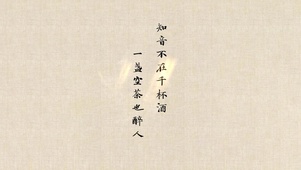 知音不在千杯酒
一盏空茶也醉人